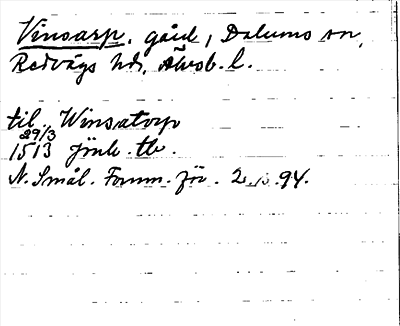 Vinsarp, gård, Dalums sn,
Redvägs hd, Älvsb. l.
til Winsatorp
29/3
1513 jönk. tb.
N. Smål. Fornm.för. 2 s. 94.